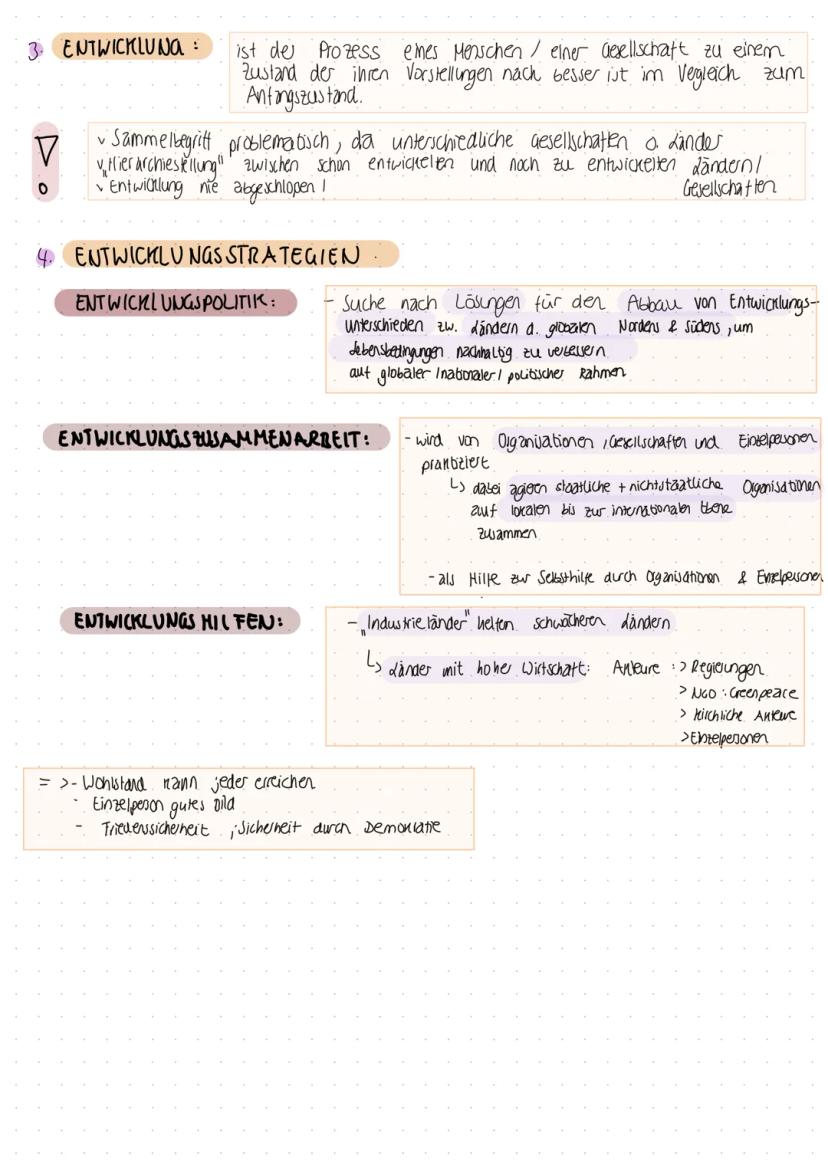 3. ENTWICKLUNG :
ist der Prozess eines Menschen / einer Gesellschaft zu einem
Zustand der ihren Vorstellungen nach besser ist im Vergleich zum
Anfangszustand.
v Sammelbegriff problematisch, da unterschiedliche Gesellschaften o. Länder
v „Hierarchiestellung" zwischen schon entwickelten und noch zu entwickelten Ländern/
v Entwicklung nie abgeschlossen! Gesellschaften
4. ENTWICKLUNGSSTRATEGIEN
ENTWICKLUNGSPOLITIK:
- Suche nach Lösungen für den Abbau von Entwicklungs-
unterschieden zw. Ländern d. globalen Nordens & Südens, um
Lebensbedingungen nachhaltig zu verbessern
auf globaler / nationaler / politischer Rahmen
ENTWICKLUNGSZUSAMMENARBEIT:
- wird von Organisationen, Gesellschaften und Einzelpersonen
praktiziert
↳ dabei agieren staatliche + nichtstaatliche Organisationen
auf lokalen bis zur internationalen Ebene
zusammen
- als Hilfe zur Selbsthilfe durch Organisationen & Einzelpersonen
ENTWICKLUNGSHILFEN:
- „Industrieländer" helfen schwächeren Ländern
↳ Länder mit hoher Wirtschaft: Akteure :> Regierungen
> NGO : Greenpeace
> Kirchliche Akteure
> Einzelpersonen
= >- Wohlstand kann jeder erreichen
- Einzelperson gutes Bild
- Friedenssicherheit , Sicherheit durch Demokratie